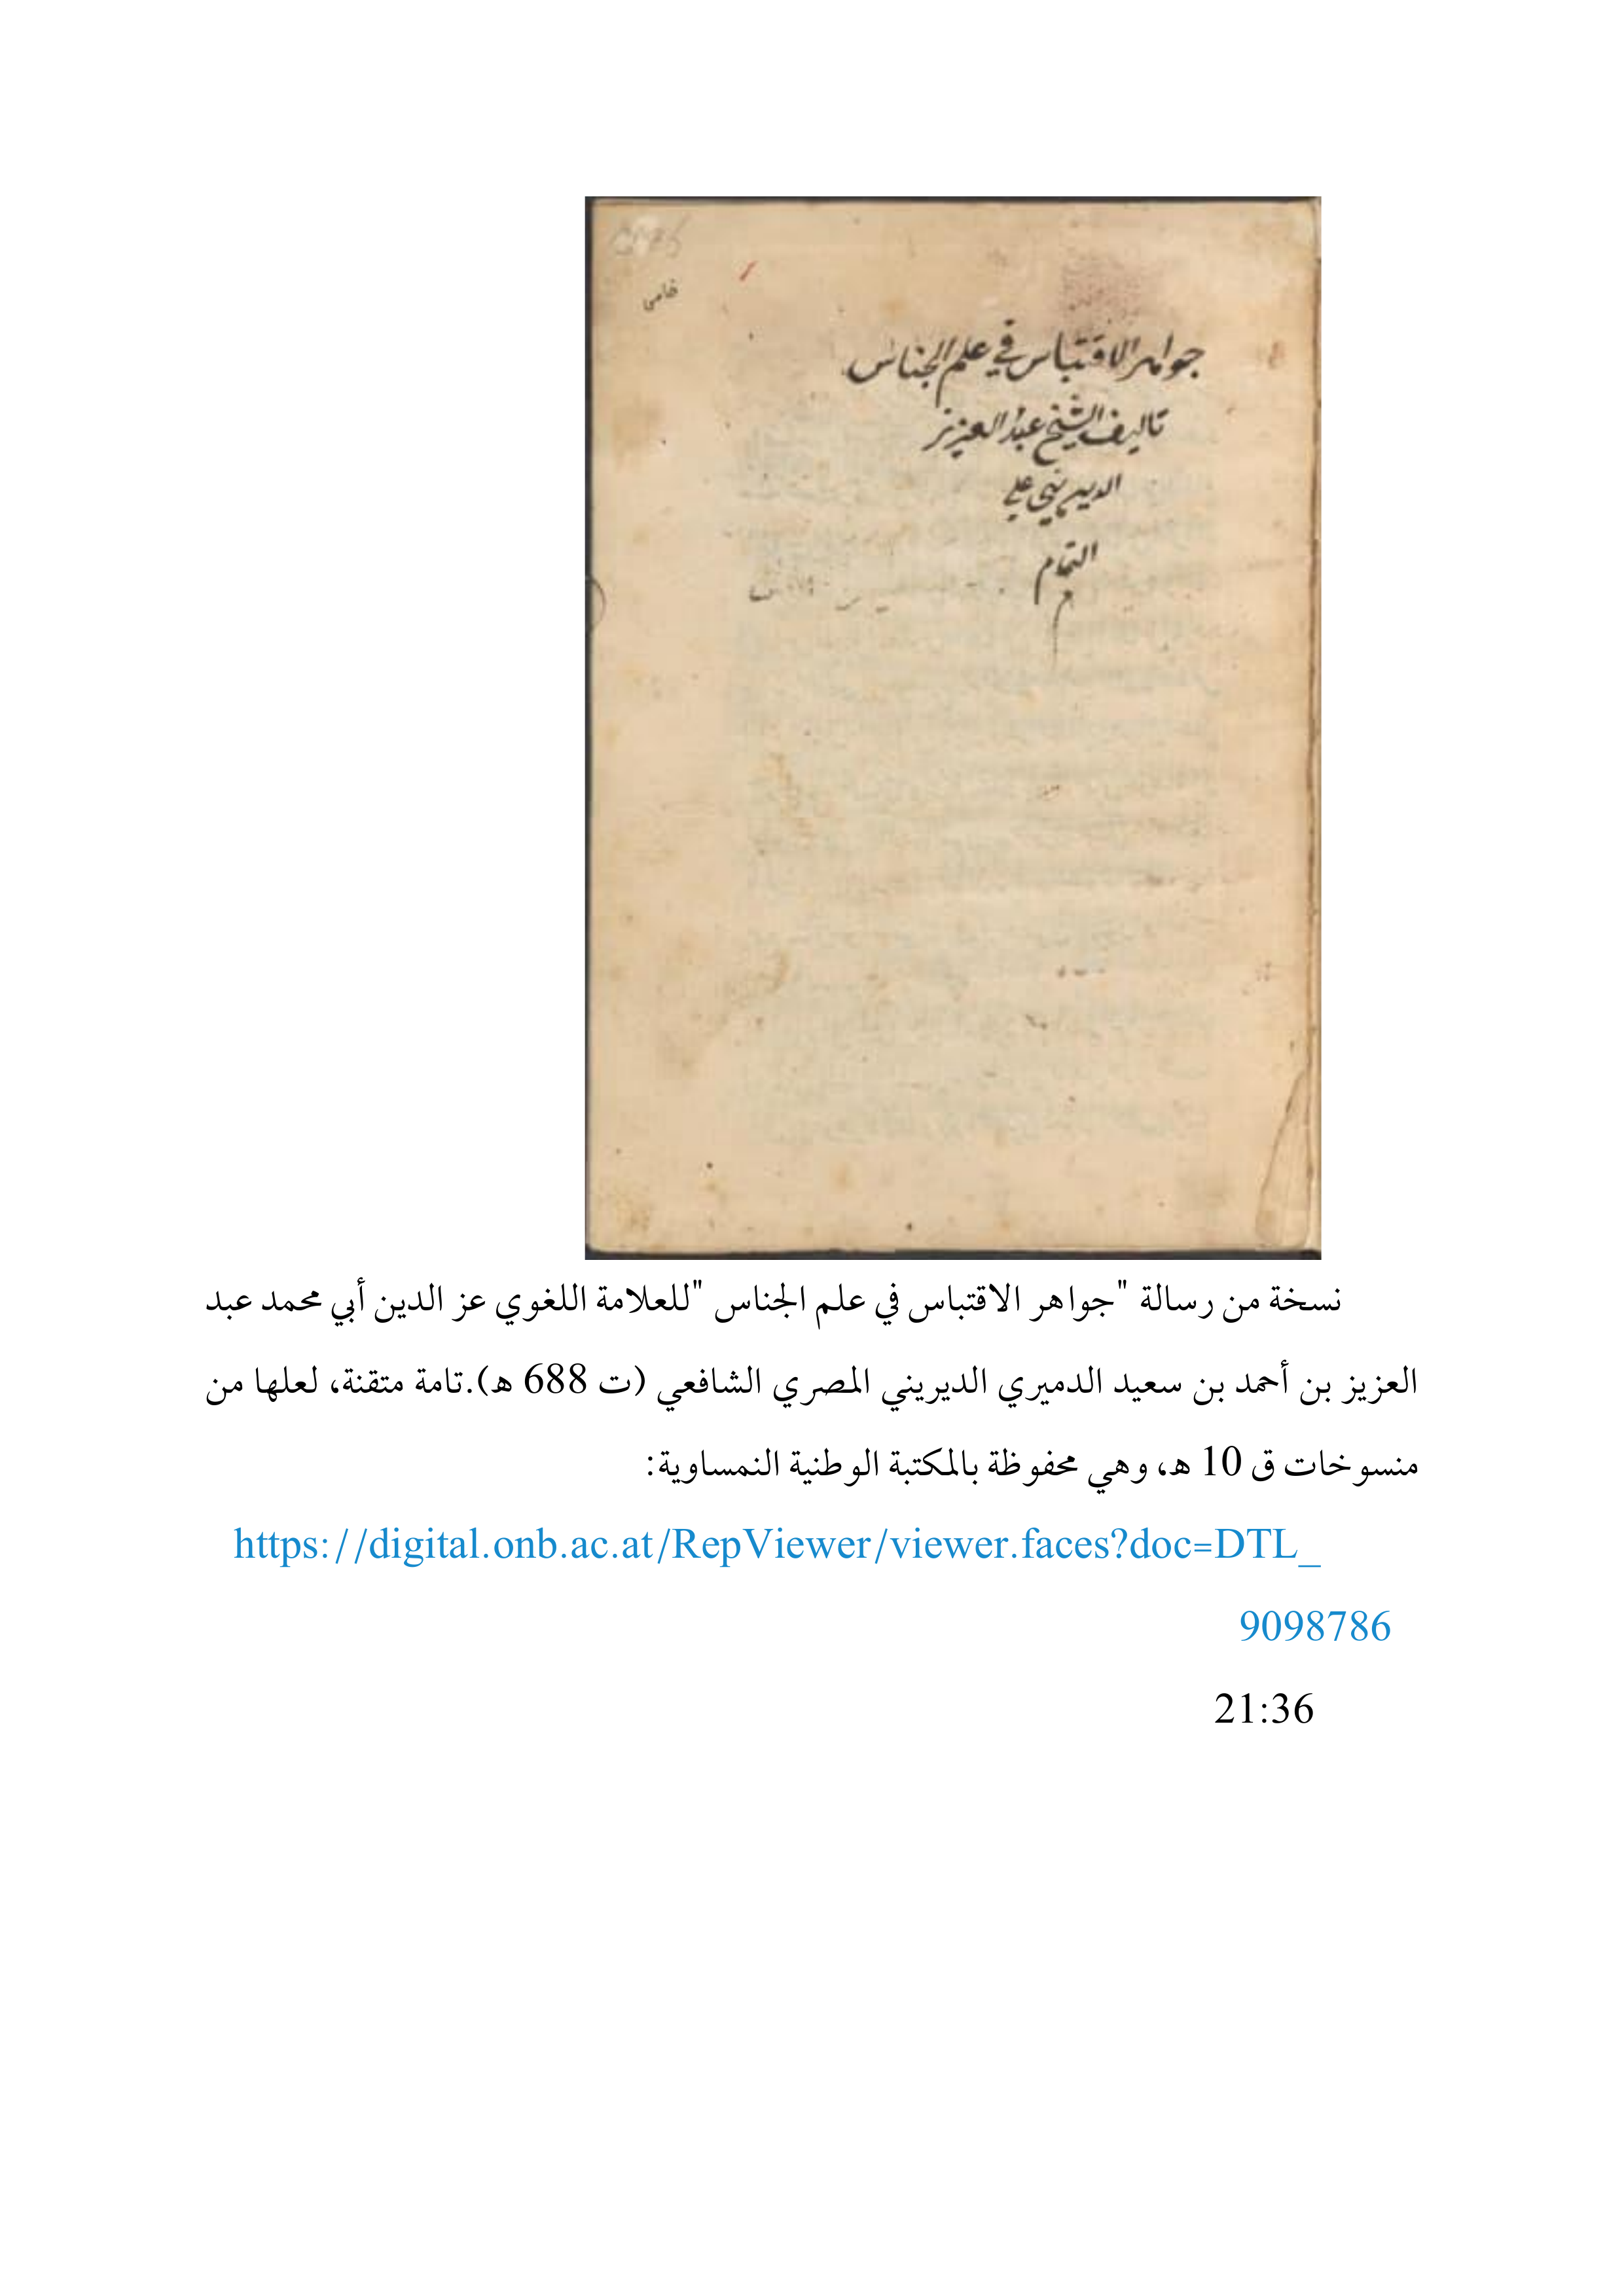 جواهر الاقتباس في علم الجناس
تاليف الشيخ عبد العزيز
الديريني علي
التمام
م
نسخة من رسالة "جواهر الاقتباس في علم الجناس "للعلامة اللغوي عز الدين أبي محمد عبد
العزيز بن أحمد بن سعيد الدميري الديريني المصري الشافعي (ت 688 ه).تامة متقنة، لعلها من
منسوخات ق 10 ه، وهي محفوظة بالمكتبة الوطنية النمساوية:
https://digital.onb.ac.at/RepViewer/viewer.faces?doc=DTL_
9098786
21:36